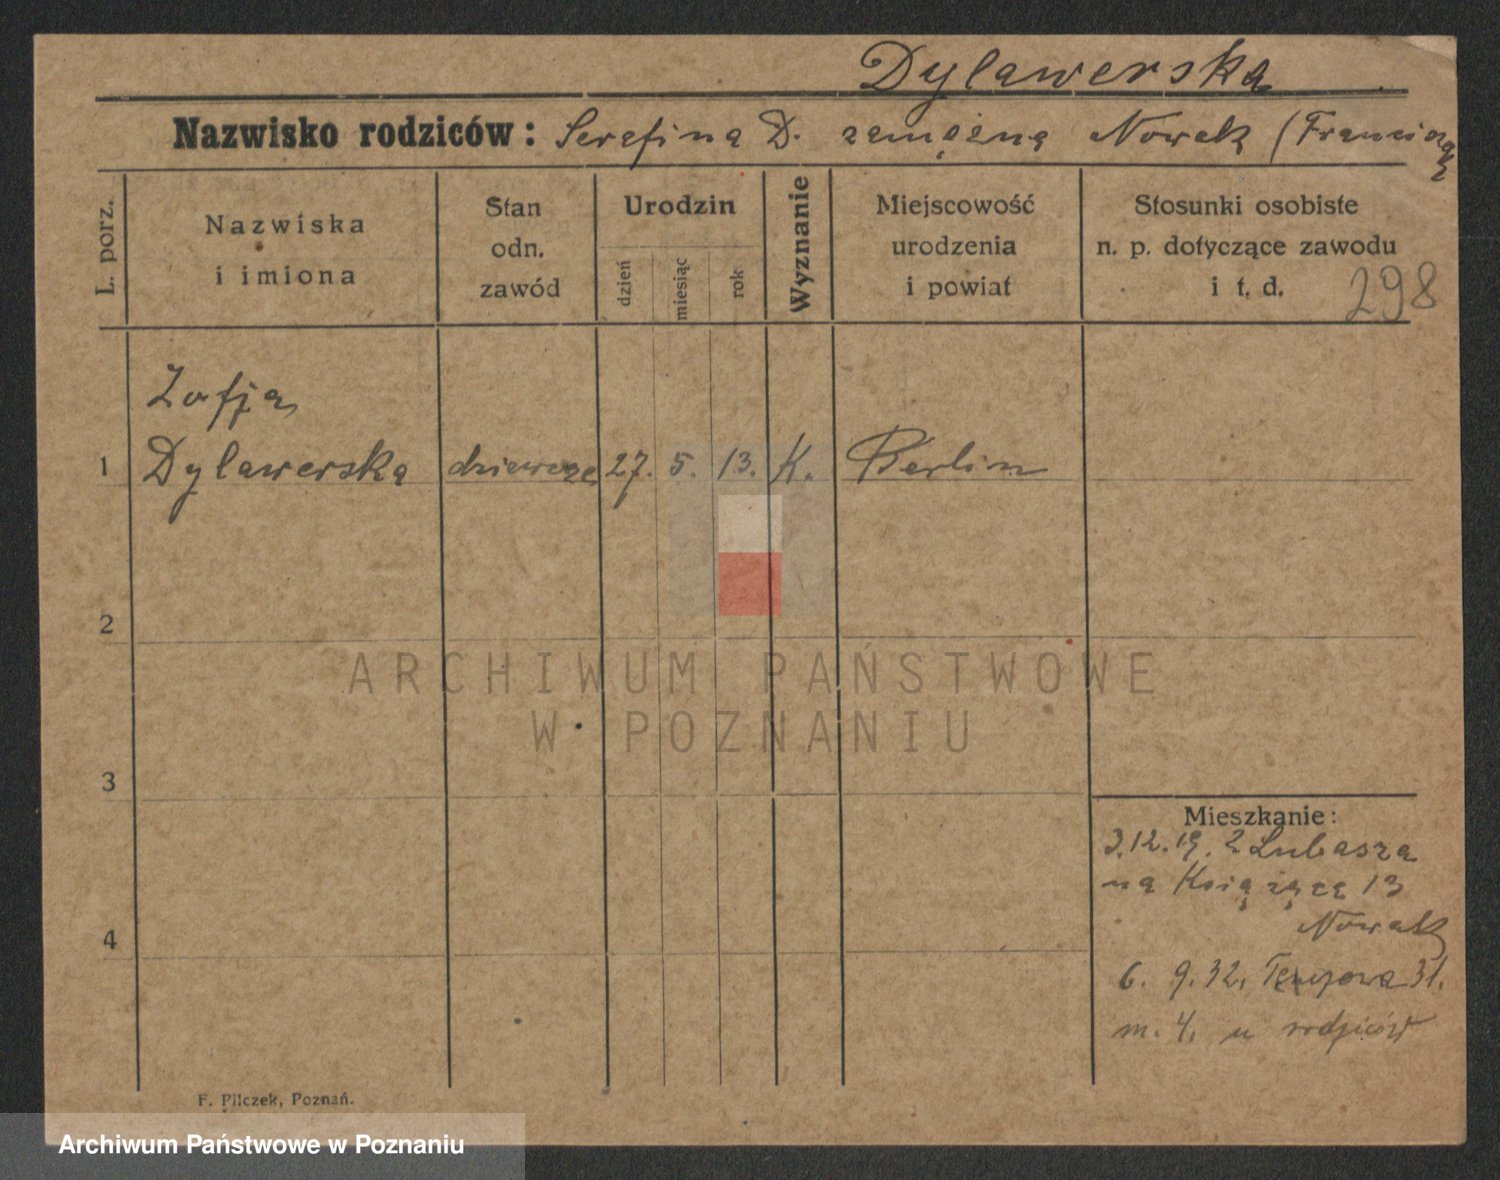 Dylawerska
Nazwisko rodziców: Serafina D. zamężna Nowak (Franciszek
L. porz.
Nazwiska
i imiona
Stan
odn.
zawód
Urodzin
dzień
miesiąc
rok
Wyznanie
Miejscowość
urodzenia
i powiat
Stosunki osobiste
n. p. dotyczące zawodu
i t. d.
298
Zofja
1 Dylawerska dziewczę 27. 5. 13. K. Berlin
2
ARCHIWUM PAŃSTWOWE
W POZNANIU
3
Mieszkanie:
3.12.19. z Lubasza
na Książęcą 13
4
Nowak
6. 9. 32. 31.
m. 4. u rodziców
F. Pilczek, Poznań.
Archiwum Państwowe w Poznaniu